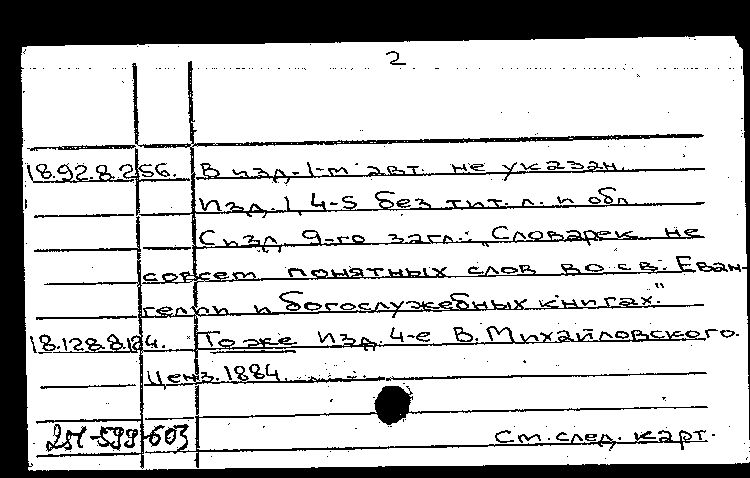 2
18.92.8.256. В изд. 1-м авт. не указан.
Изд. 1, 4-5 без тит. л. и обл.
С изд. 9-го загл.: „Словарек не
совсем понятных слов во св. Еван-
гелии и богослужебных книгах."
18.128.8.184. То же Изд. 4-е В. Михайловского.
Ценз. 1884.
251-599-603 См. след. карт.